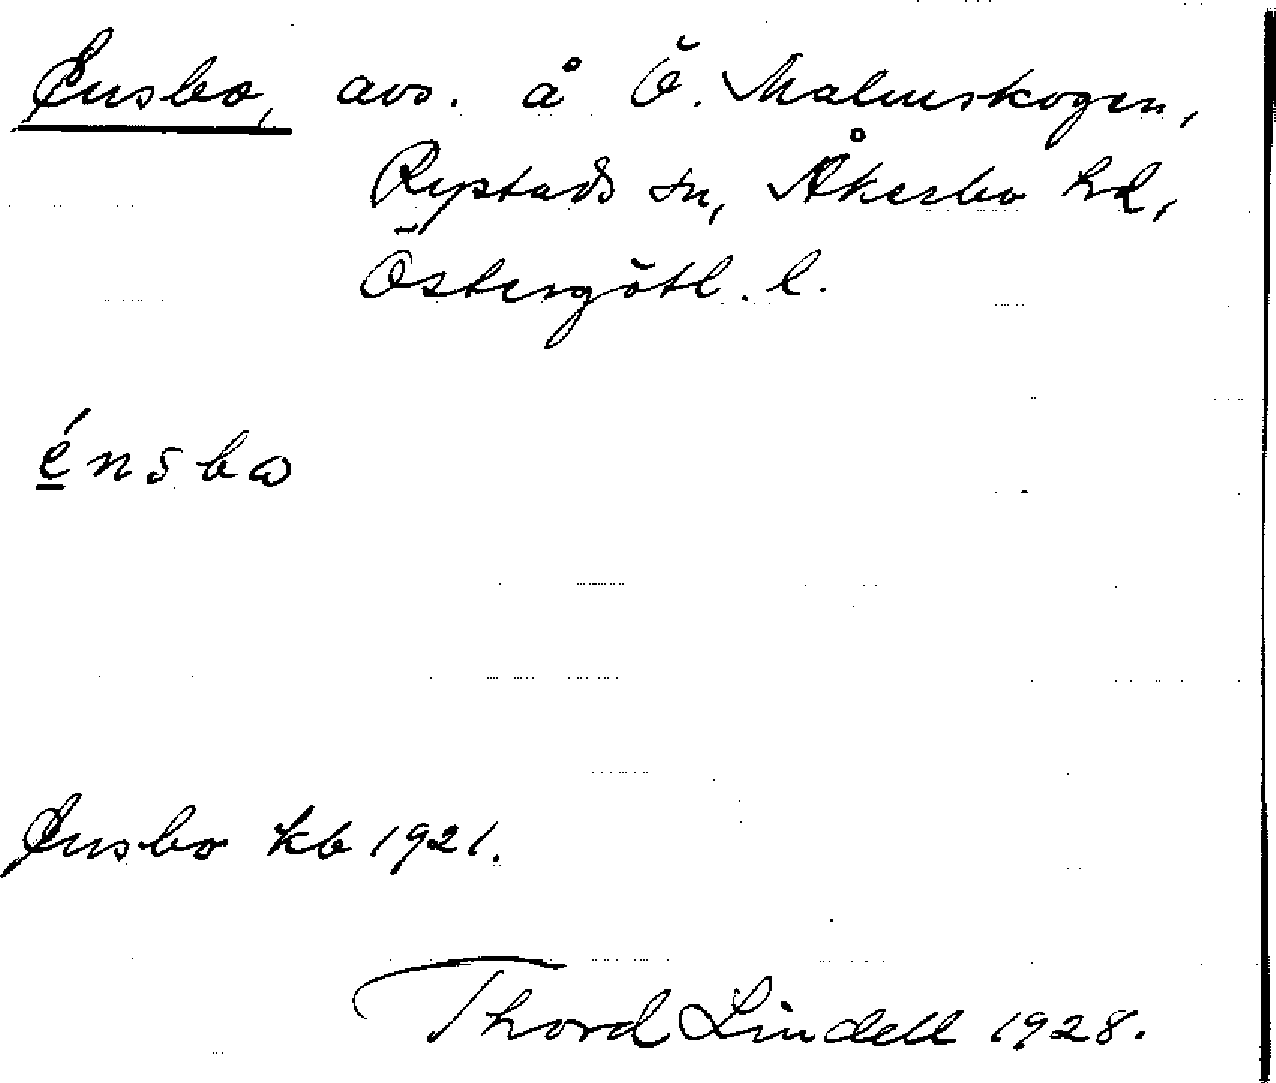 Ensbo, avs. å Ö. Malmskogen,
Rystads sn, Åkerbo hd,
Östergötl. l.
énsbω
Ensbo kb 1921.
Thord Lindell 1928.